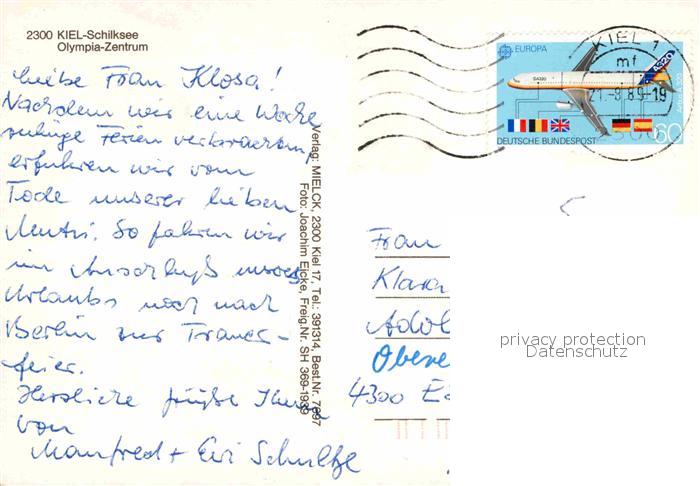 2300 KIEL-Schilksee
Olympia-Zentrum
Liebe Frau Klosa!
Nachdem wir eine Woche
ruhige Ferien verbrachten,
erfuhren wir vom
Tode unserer lieben
Mutti. So fahren wir
im Anschluß unseres
Urlaubs noch nach
Berlin zur Trauer-
feier.
Herzliche Grüße Ihnen
von
Manfred + Evi Schultze
Verlag: MIELCK, 2300 Kiel 17, Tel.: 391314, Best.Nr. 7697
Foto: Joachim Eicke, Freig.Nr. SH 369-1939
EUROPA
A320
DEUTSCHE BUNDESPOST
60
KIEL 1
mf
21.-8.89-19
Frau
Klara
Adol
4300 Es
privacy protection
Datenschutz